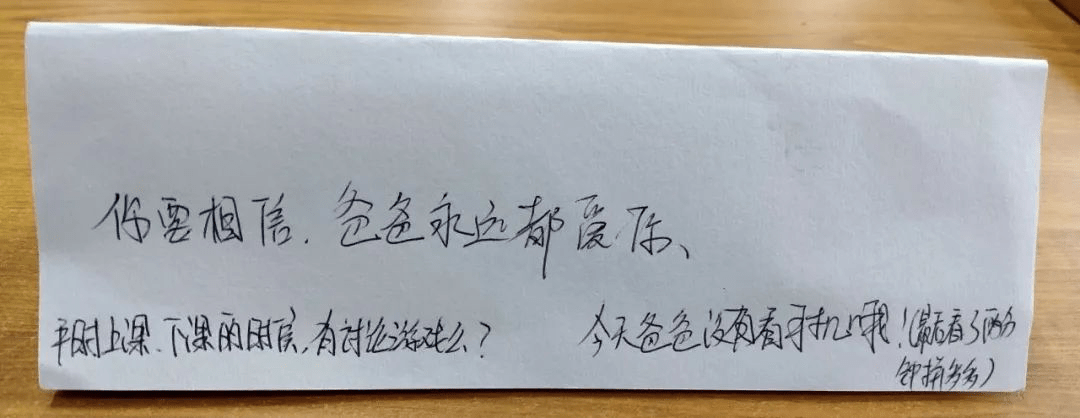 你要相信,爸爸永远都爱你、
平时上课、下课的时候,有讨论游戏么?
今天爸爸没有看手机哦!(最后看了两分
钟拼多多)